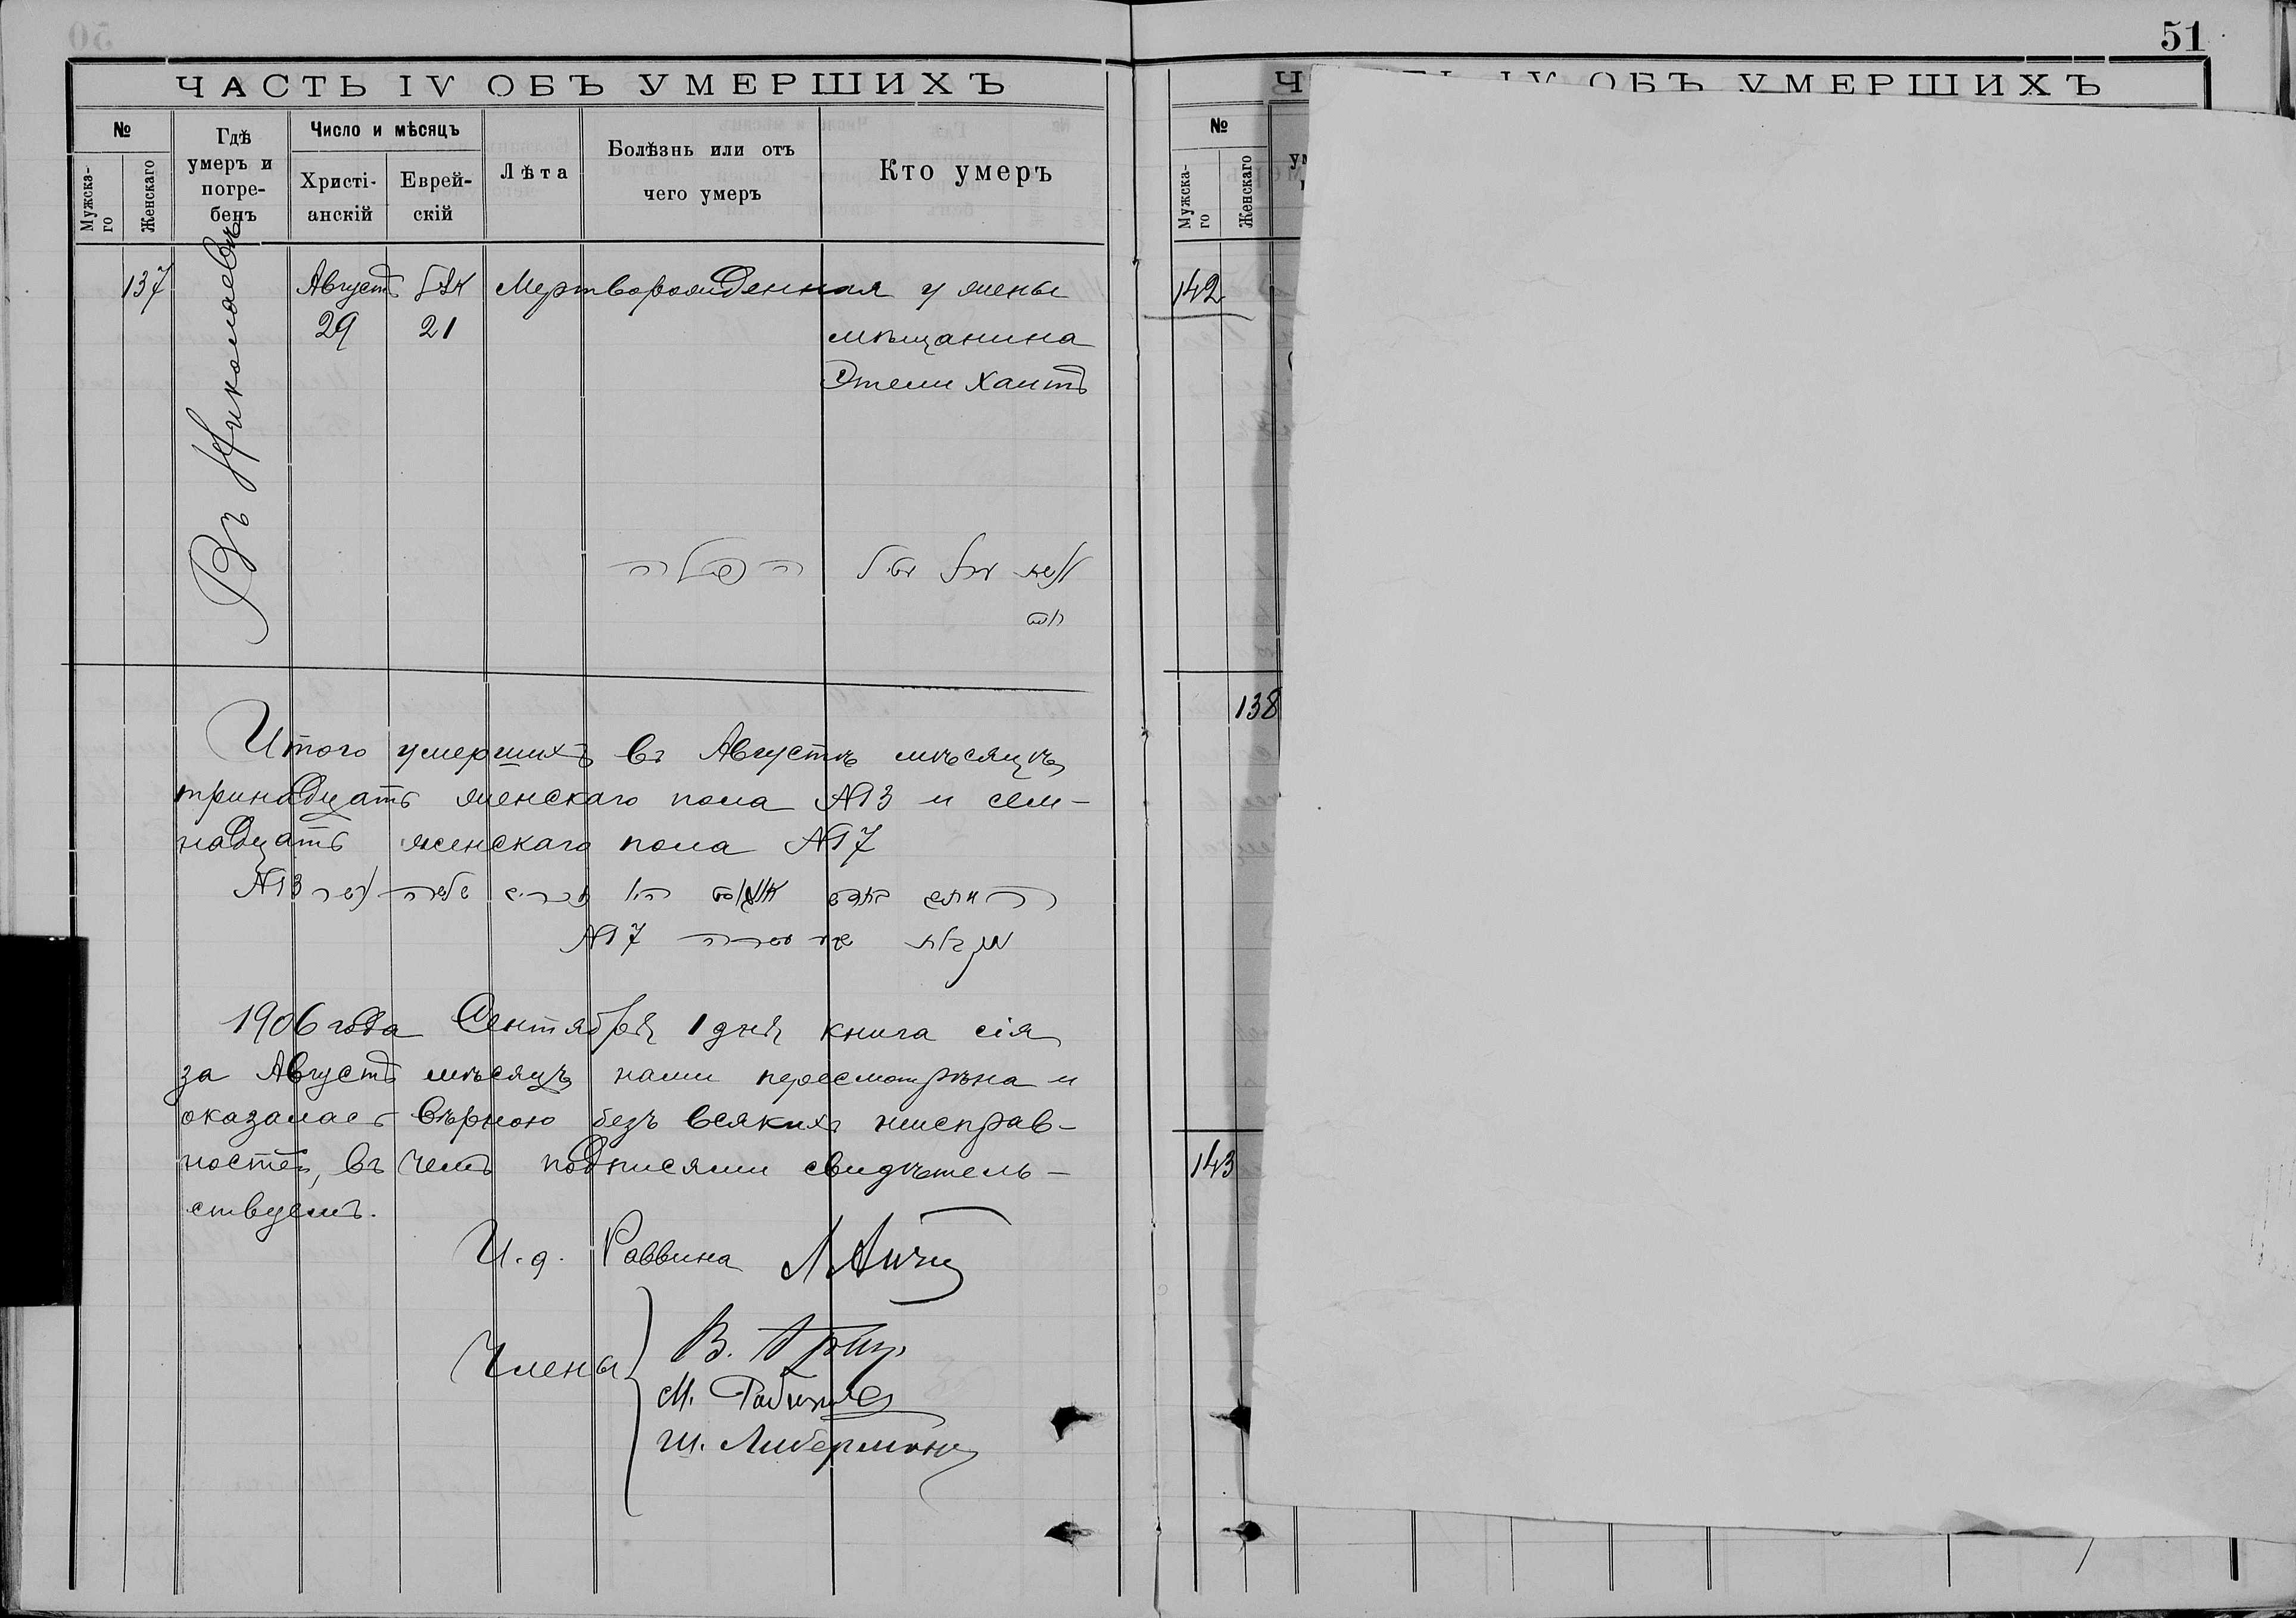 51
ЧАСТЬ IV ОБЪ УМЕРШИХЪ
№
Мужска-
го
Женскаго
Гдѣ
умеръ и
погре-
бенъ
Число и мѣсяцъ
Христі-
анскій
Еврей-
скій
Лѣта
Болѣзнь или отъ
чего умеръ
Кто умеръ
137
Въ Николаевѣ
Августъ
29
21
Мертворожденная у жены
мѣщанина
Этели Хаитъ
הפילה
Итого умершихъ въ Августѣ мѣсяцѣ
тринадцать женскаго пола №13 и сем-
надцать женскаго пола №17
№13
№17
1906 года Сентября 1 дня книга сія
за Августъ мѣсяцъ нами пересмотрѣна и
оказалась вѣрною безъ всякихъ неисправ-
ностей, въ чемъ подписями свидѣтель-
ствуемъ.
И. д. Раввина
Члены
В.
М.
Ш. Либерманъ
ОБЪ УМЕРШИХЪ
№
Мужска-
го
Женскаго
142
138
143